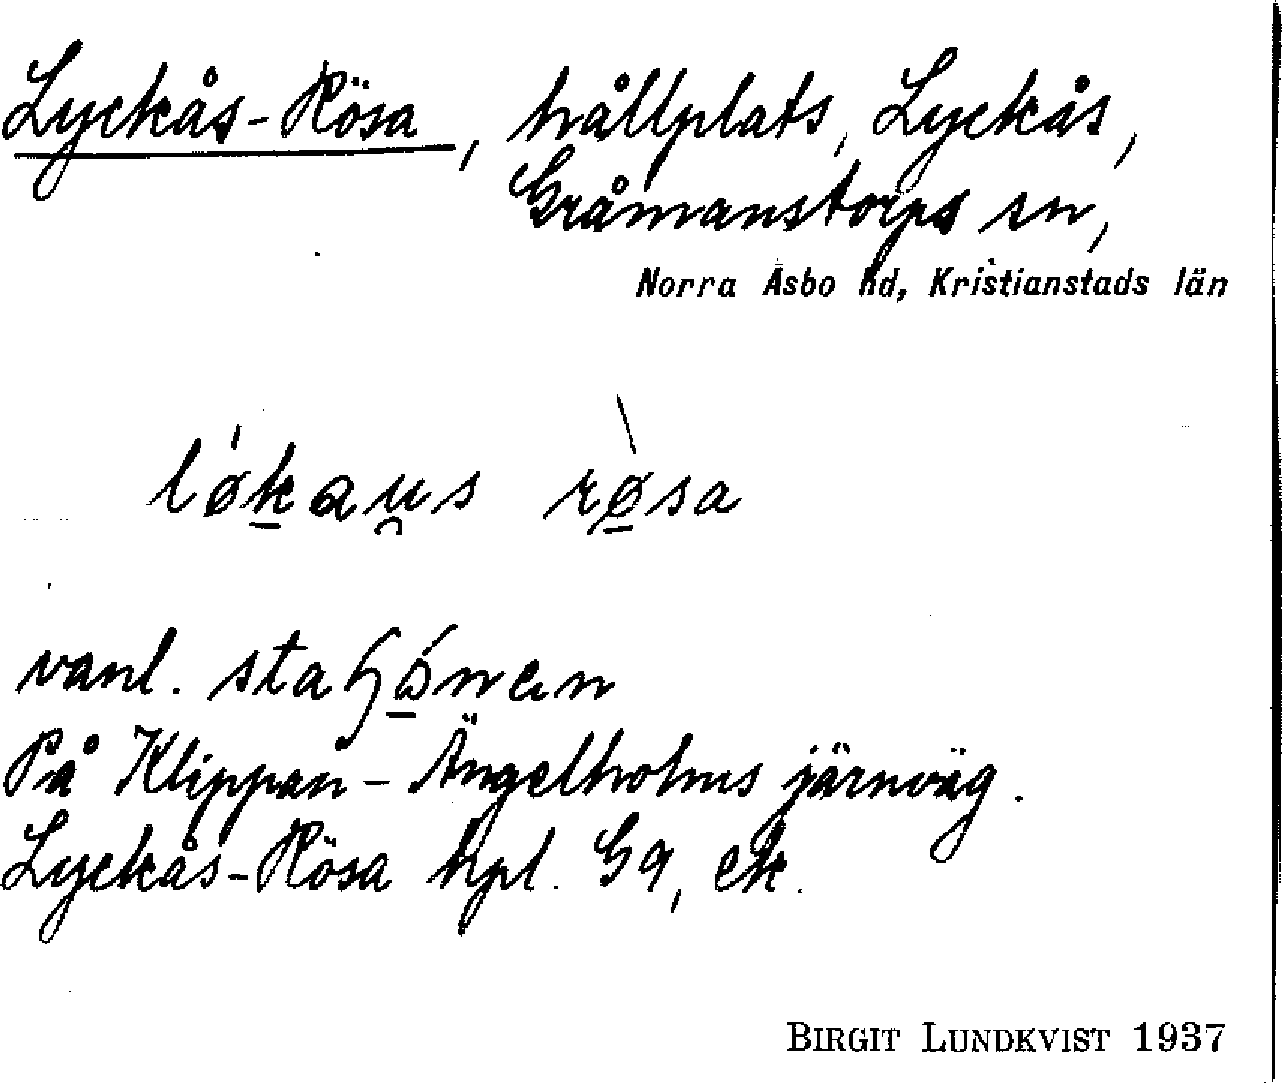 Lyckås-Rösa, hållplats, Lyckås,
Gråmanstorps sn,
Norra Åsbo hd, Kristianstads län
løkau̯s rø̱sa
vanl.
På Klippan - Ängelholms järnväg.
Lyckås-Rösa hpl. G9, ek.
BIRGIT LUNDKVIST 1937